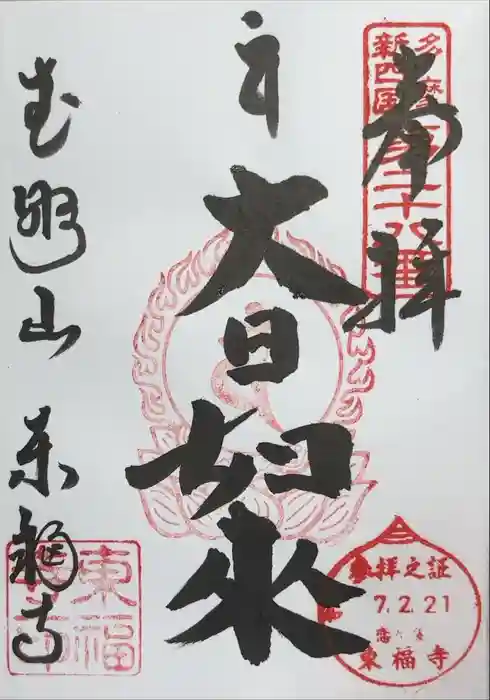 奉拝
多摩
新四国
二十八番
大日如来
山 東福寺
東福寺
拝之証
7.2.21
東福寺